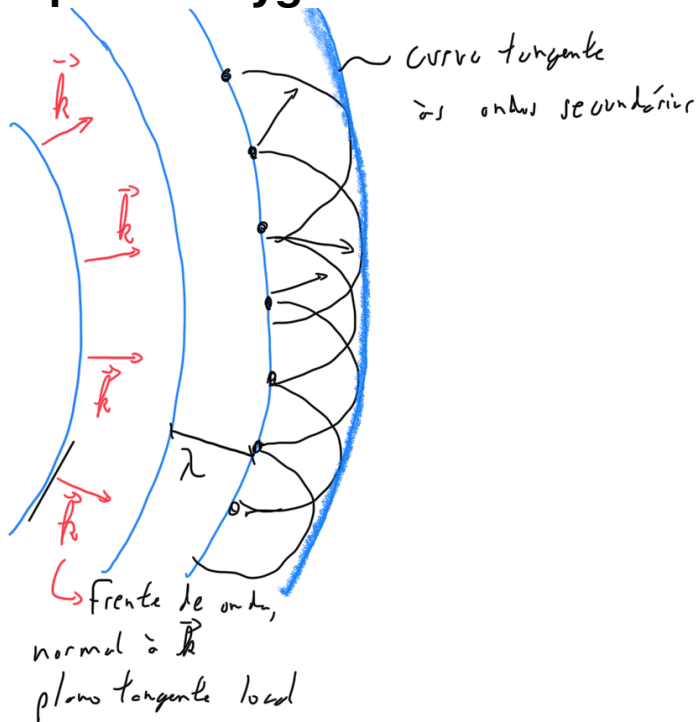 curva tangente
às ondas secundárias
k
k
k
λ
k
Frente de onda,
normal à k
plano tangente local